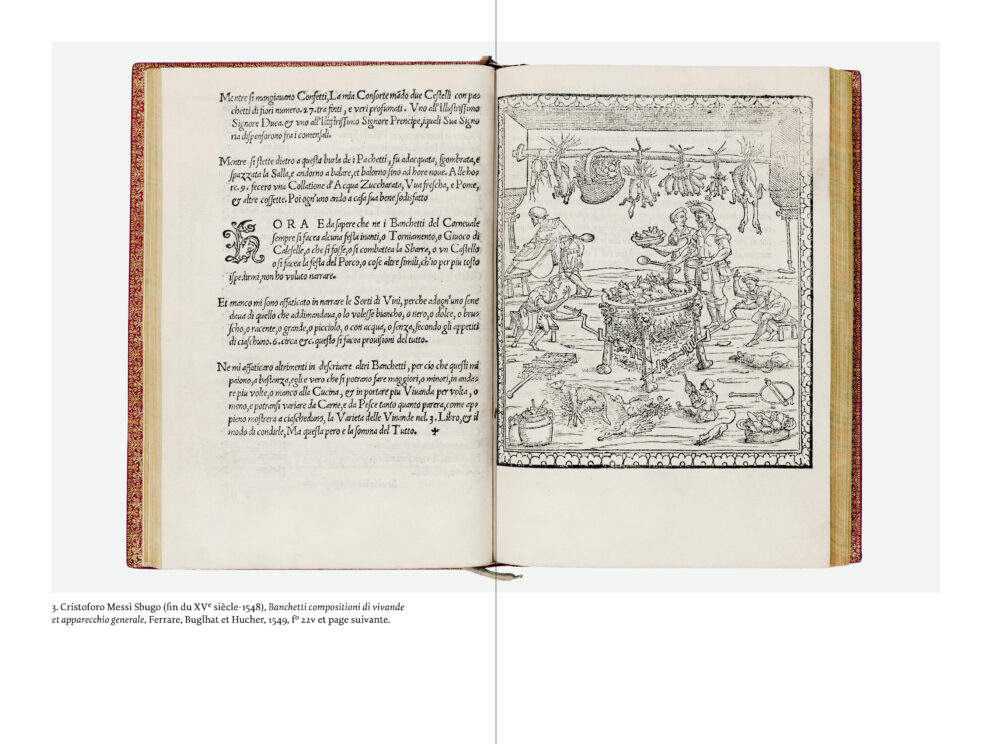 Mentre si mangiauano Confetti, La mia Consorte mãdo due Cestelli con pa-
chetti di fiori numero. 27. tra finti, e veri profumati. Vno all'Illustrissimo
Signore Duca. & vno all'Illustrissimo Signore Prencipe, iquali Sua Signo
ria dispensorono fra i comensali.
Mentre si stette dietro a questa burla de i Pachetti, fu adacquata, sgombrata, e
spazzata la Salla, e andorno a balare, et balorno sino ad hore noue. Alle ho-
re. 9. fecero vna Collatione d'Acqua Zuccharata, Vua frescha, e Pome,
& altre cossette. Poi ogn'uno ando a casa sua bene sodisfatto
HORA E da sapere che ne i Banchetti del Carneuale
sempre si facea alcuna festa inanti, o Torniamento, o Giuoco di
Caroselle, o che si fosse, o si combattea la Sbarre, o vn Castello
o si facea la festa del Porco, o cose altre simili, ch'io per piu tosto
ispedirmi, non ho voluto narrare.
Et manco mi sono affaticato in narrare le Sorti di Vini, perche adogn'uno sene
daua di quello che addimandaua, o lo volesse biancho, o nero, o dolce, o bru-
scho, o racente, o grande, o picciolo, o con acqua, o senza, secondo gli appetiti
di ciaschuno. & circa &c. questo si facea prouisioni del tutto.
Ne mi affaticaro altrimenti in descriuere altri Banchetti, per cio che questi mi
paiono, a bastenza, egli e vero che si potrano fare maggiori, o minori, in anda-
re piu volte, o manco alla Cucina, & in portare piu Viuanda per volta, o
meno, e potransi variare da Carne, e da Pesce tanto quanto parera, come apo
pieno mostrera a ciascheduno, la Varieta delle Viuande nel. 3. Libro, & il
modo di condirle, Ma questa pero e la somma del Tutto. ✠
3. Cristoforo Messi Sbugo (fin du XVe siècle-1548), Banchetti compositioni di vivande
et apparecchio generale, Ferrare, Buglhat et Hucher, 1549, fº 22v et page suivante.